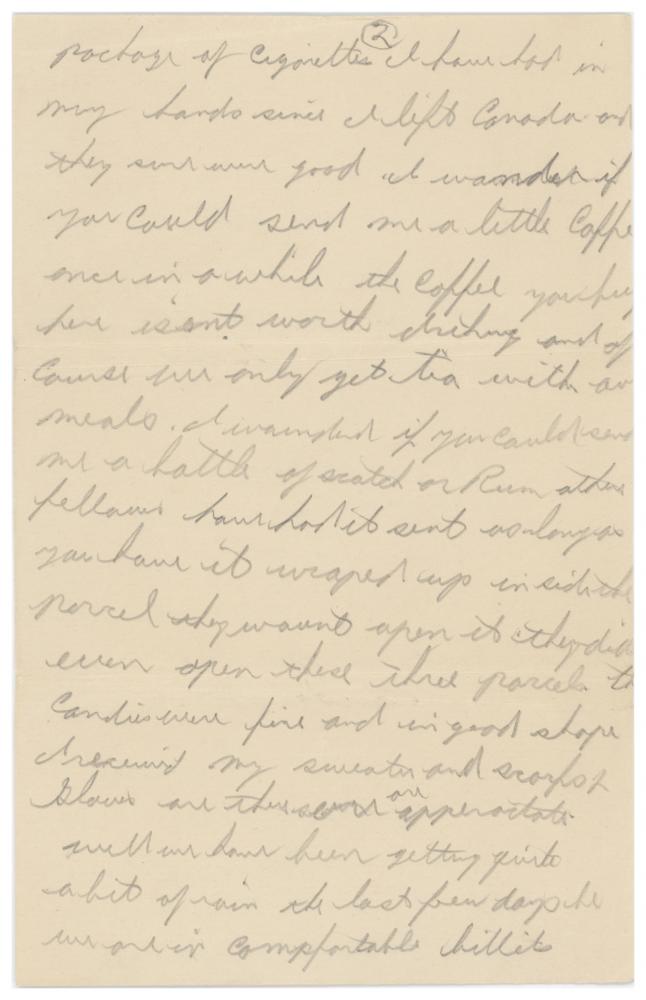 2
package of Cigarettes I have had in
my hands since I left Canada and
they sure were good I wander if
you Could send me a little Coffe
once in a while the Coffee you buy
here is'ent worth drinking and of
Course we only get tea with our
meals. I wounderd if you could send
me a bottle of scotch or Rum others
fellows have had it sent as long as
you have it wraped up in side the
parcel they wount open it they did
even open these three parcels th
Candies were fine and in good shape
I received my sweater and scarfs &
Gloves are these are apperactate
well we have been getting quite
a bit of rain the last few days he
we are in Compfortable billits